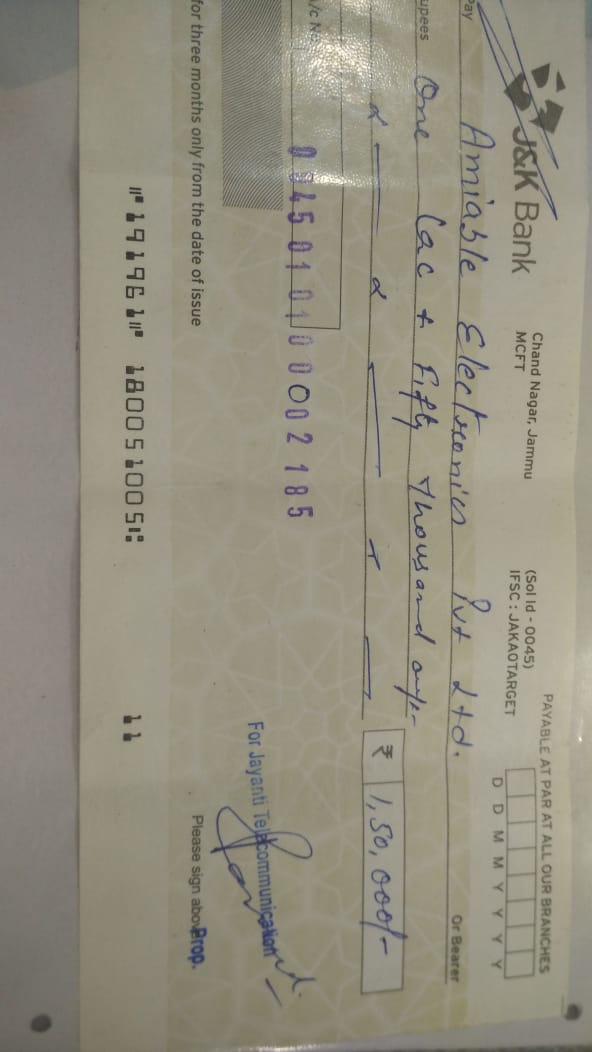 J&K Bank
Chand Nagar, Jammu
MCFT
(Sol Id - 0045)
IFSC : JAKA0TARGET
PAYABLE AT PAR AT ALL OUR BRANCHES
D D M M Y Y Y Y
Pay Amiable Electronics Pvt Ltd. Or Bearer
upees One lac + Fifty thousand only-
₹ 1,50,000/-
A/c No. 0045010100002185
For Jayanti Telecommunication
Please sign above
Prop.
for three months only from the date of issue
⑈191961⑈ 180051005⑆ 11